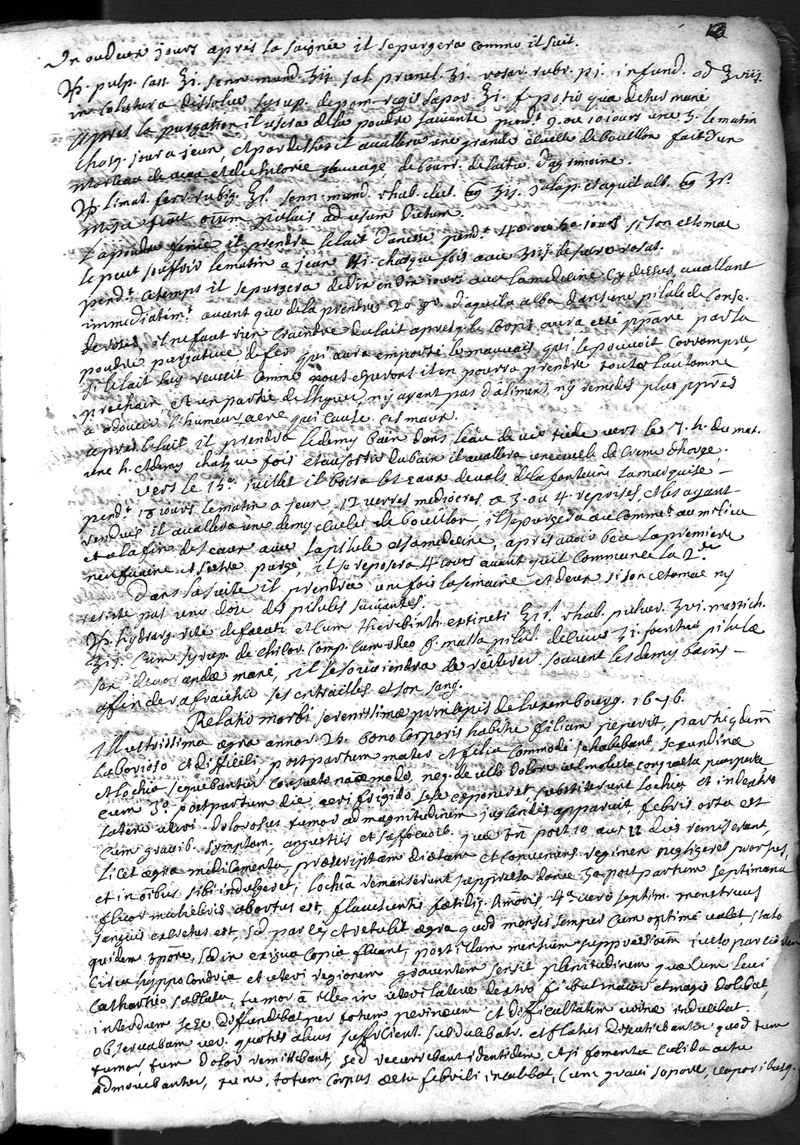 Un ou deux jours apres la saignée il se purgera comme il suit.
℞. pulp. cass. ℥i. senn. mund. ʒii. sal. prunel. ʒi. rosar. rubr. p.i. infund. ad ℥viii.
in colatura dissolve syrup. de pom. regis sapor ℥i. f. potio quâ detur mane
Apres la purgation il usera de la poudre suivante pend.t 9. ou 10 jours une ʒ. le matin
chaq. jour a jeun, et par dessus il avallera une grande écuelle de bouillon fait d'un
morceau de veau et de chicorée sauvage de bourr. de laitue d'aigrimoine.
℞. limat. ferr. rubig. senn. mund. rhab. elect. Jalap. et aquil. alb.
misce fiat pulvis ad usum dictum.
La poudre finie il prendra le lait d'anesse pend.t 40 ou 50 jours si son estomac
le peut souffrir le matin a jeun chaque fois avec de sucre rosat.
pend.t ce temps il se purgera de dix en dix jours avec la medecine cy dessus, avallant
immediatem.t avant que de la prendre 20 gr. d'aquila alba dans une pilule de conse.
de roses, il ne faut rien craindre du lait apres q. le corps aura eté pparé par la
poudre purgative de fer qui aura emporté le mauvais qui le pouvoit corrompre,
si le lait luy reussit comme nous esperons il en pourra prendre toute l'automne
prochain et un partie de l'hyver, n'y ayant pas d'aliment, ny remedes plus ppres
a adoucir l'humeur acre qui cause ces maux.
apres le lait il prendra le demy bain dans l'eau de vie tiede vers les 7. h. du mat.
une h. et demy chaq. fois et au sortir du bain il avallera une ecuele de creme d'horge.
Vers le 15.e juillet il boira les eaux de vals de la fontaine la marquise
pend.t 18 jours le matin a jeun, 12 verres mediocres a 3. ou 4. reprises, et les ayant
rendues il avallera une demy ecuelée de bouillon, il se purgera au commet. au milieu
et a la fin des eaux avec la pilule et la medecine, apres avoir beu la premiere
neufvaine et s'etre purgé, il se reposera 4 jours avant qu'il commence la 2.de
Dans la suite il prendra une fois la semaine et deux si son estomac ny
resiste pas une dose des pilules suivantes.
℞. hydrarg. rite defaecati et cum therebinth. extincti rhab. pulver. mastich.
cum syrup. de chicor. comp. cum rheo f. massa pilul. de cuius ʒi. formentur pilulae
devorandae mane, il se souviendra de reiterer souvent les demy bains
afin de rafraichir ses entrailles et son sang.
Relatio morbi serenissimae principis de Luxembourg. 1696.
Illustrissima aegra annor. 26. bono corporis habitu filiam peperit, partu quidem
laborioso et difficili, post partum mater et filia commode se habebant, secundinae
et lochia sequebantur consueto naturae modo, neq. de ullo dolore vel molestia conquesta puerpera
cum 3.o post partum die aeri frigido sese exponeret substiterunt lochia et in dextro
latere uteri dolorosus tumor ad magnitudinem juglandis apparuit, febris orta est
cum gravib. symptom. angustiis et suffocaib. quae tn post 10 aut 12 dies remiserunt,
licet aegra medicamenta, praescriptam diaetam et conveniens regimen negligeret prorsus,
et in omibus sibi indulgeret, lochia remanserunt suppressa donec 3a post partum septimana
fluor muliebris obortus est, flavescentis faetidiq. humoris, 4a vero septim. menstruus
sanguis excretus est, sed parce, et retulit aegra quod menses semper cum optime valet, stato
quidem tpore, sed in exigua copia fluant, post illam mensium suppressionem
circa hyppocondria et uteri regionem gravantem sensit plenitudinem quae cum leni
cathartico soluta, tumor ille in uteri latere dextro fiebat maior et magis dolebat,
interdum sese diffundebat per totum perinaeum et difficultatem urinae inducebat.
observabam vero, quoties alvus sufficient. subducebatr. et flatus discutiebantur quod tum
tumor, tum dolor remittebant, sed recurrebant identidem, et si fomenta calida actu
admovebantur, tunc totum corpus aestu febrili incalebat, cum gravi sopore, vaporibusq.